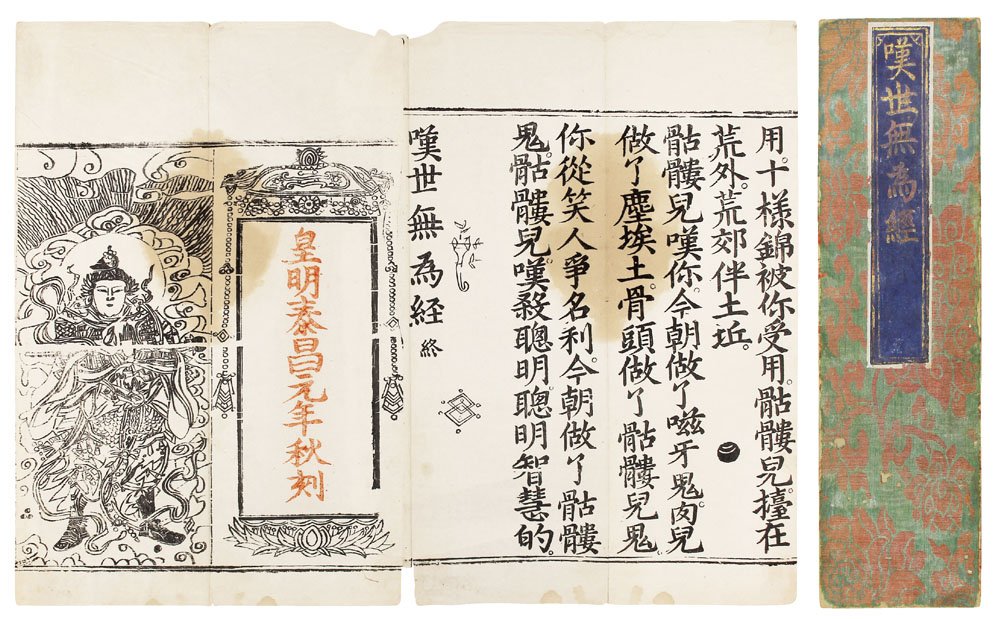 嘆世無為經
用。十樣錦被你受用。骷髏兒。擡在
荒外。荒郊伴土坵。
骷髏兒嘆你。今朝做了嗞牙鬼肉兒
做了塵埃土。骨頭做了骷髏兒鬼。
你從笑人爭名利。今朝做了骷髏
鬼。骷髏兒。嘆殺聰明。聰明智慧的。
嘆世無為経終
皇明泰昌元年秋刻